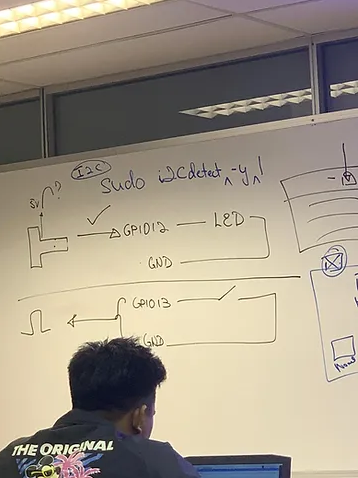 I2C
sudo i2cdetect -y 1
5v ?
GPIO12 LED
GND
GPIO13
GND
THE ORIGINAL